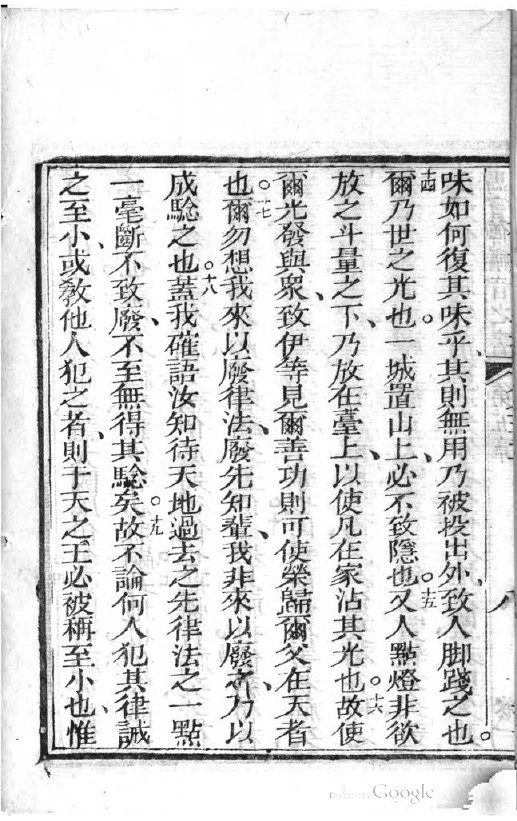 味如何復其味乎其則無用乃被投出外、致人脚踐之也。
十四爾乃世之光也。一城置山上、必不致隱也。十五又人點燈非欲
放之斗量之下、乃放在臺上、以使凡在家沾其光也。十六故使
爾光發與衆、致伊等見爾善功則可使榮歸爾父在天者
也。十七爾勿想我來以廢律法、廢先知輩、我非來以廢、乃以
成騐之也。十八蓋我確語汝知待天地過去之先律法之一點
一毫斷不致廢、不至無得其騐矣。十九故不論何人犯其律誡
之至小、或敎他人犯之者、則于天之王必被稱至小也、惟
Google